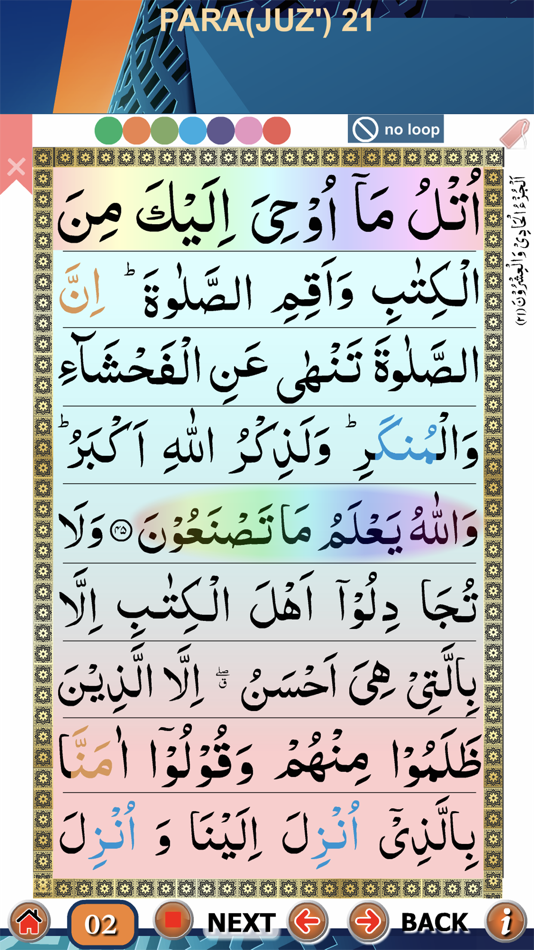 PARA(JUZ') 21
no loop
اَلْجُزْءُ الْحَادِیْ وَالْعِشْرُوْنَ (۲۱)
اُتْلُ مَآ اُوْحِیَ اِلَیْكَ مِنَ
الْكِتٰبِ وَاَقِمِ الصَّلٰوةَ ؕ اِنَّ
الصَّلٰوةَ تَنْهٰی عَنِ الْفَحْشَآءِ
وَالْمُنكَرِ ؕ وَلَذِكْرُ اللّٰهِ اَكْبَرُ ؕ
وَاللّٰهُ یَعْلَمُ مَا تَصْنَعُوْنَ ۴۵ وَلَا
تُجَا دِلُوْٓا اَهْلَ الْكِتٰبِ اِلَّا
بِالَّتِیْ هِیَ اَحْسَنُ ۖق اِلَّا الَّذِیْنَ
ظَلَمُوْا مِنْهُمْ وَقُوْلُوْٓا اٰمَنَّا
بِالَّذِیْٓ اُنْزِلَ اِلَیْنَا وَ اُنْزِلَ
02 NEXT BACK i